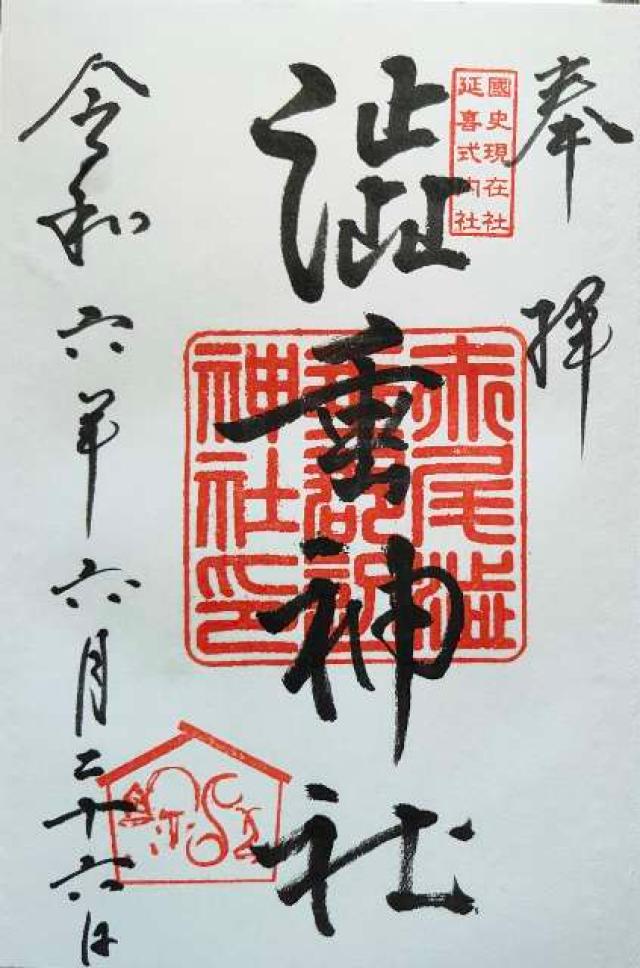 奉拝
國史現在社
延喜式内社
澁垂神社
赤尾澁
垂郡辺
神社印
令和六年六月二十六日